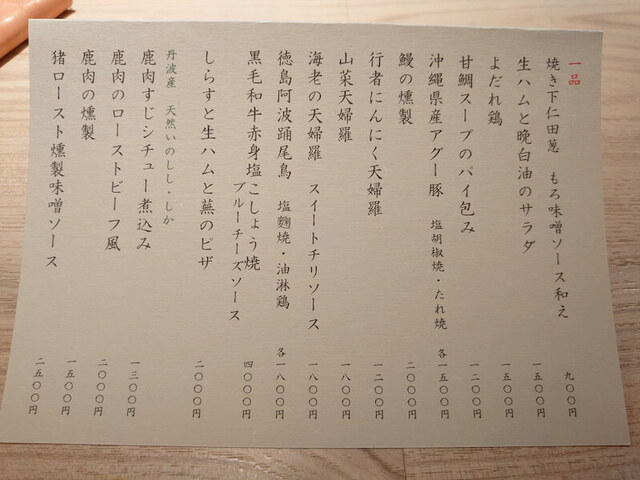 一品
焼き下仁田葱 もろ味噌ソース和え 九〇〇円
生ハムと晩白油のサラダ 一五〇〇円
よだれ鶏 一五〇〇円
甘鯛スープのパイ包み 一二〇〇円
沖縄県産アグー豚 塩胡椒焼・たれ焼 各一五〇〇円
鰻の燻製 二〇〇〇円
行者にんにく天婦羅 一二〇〇円
山菜天婦羅 一八〇〇円
海老の天婦羅 スイートチリソース 一八〇〇円
徳島阿波踊尾鳥 塩麹焼・油淋鶏 各一八〇〇円
黒毛和牛赤身塩こしょう焼
ブルーチーズソース 四〇〇〇円
しらすと生ハムと蕪のピザ 二〇〇〇円
丹波産 天然いのしし・しか
鹿肉すじシチュー煮込み 一三〇〇円
鹿肉のローストビーフ風 二〇〇〇円
鹿肉の燻製 一五〇〇円
猪ロースト燻製味噌ソース 二五〇〇円